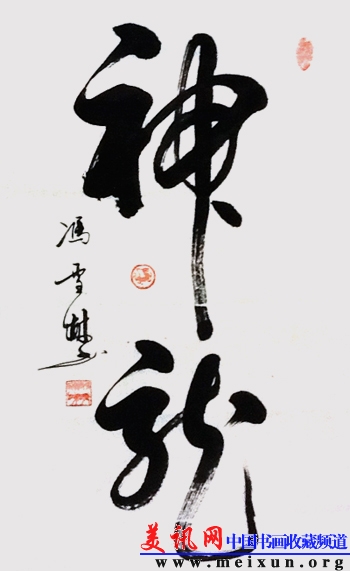 神龍
馮雪
美讯网 中国书画收藏频道
www.meixun.org